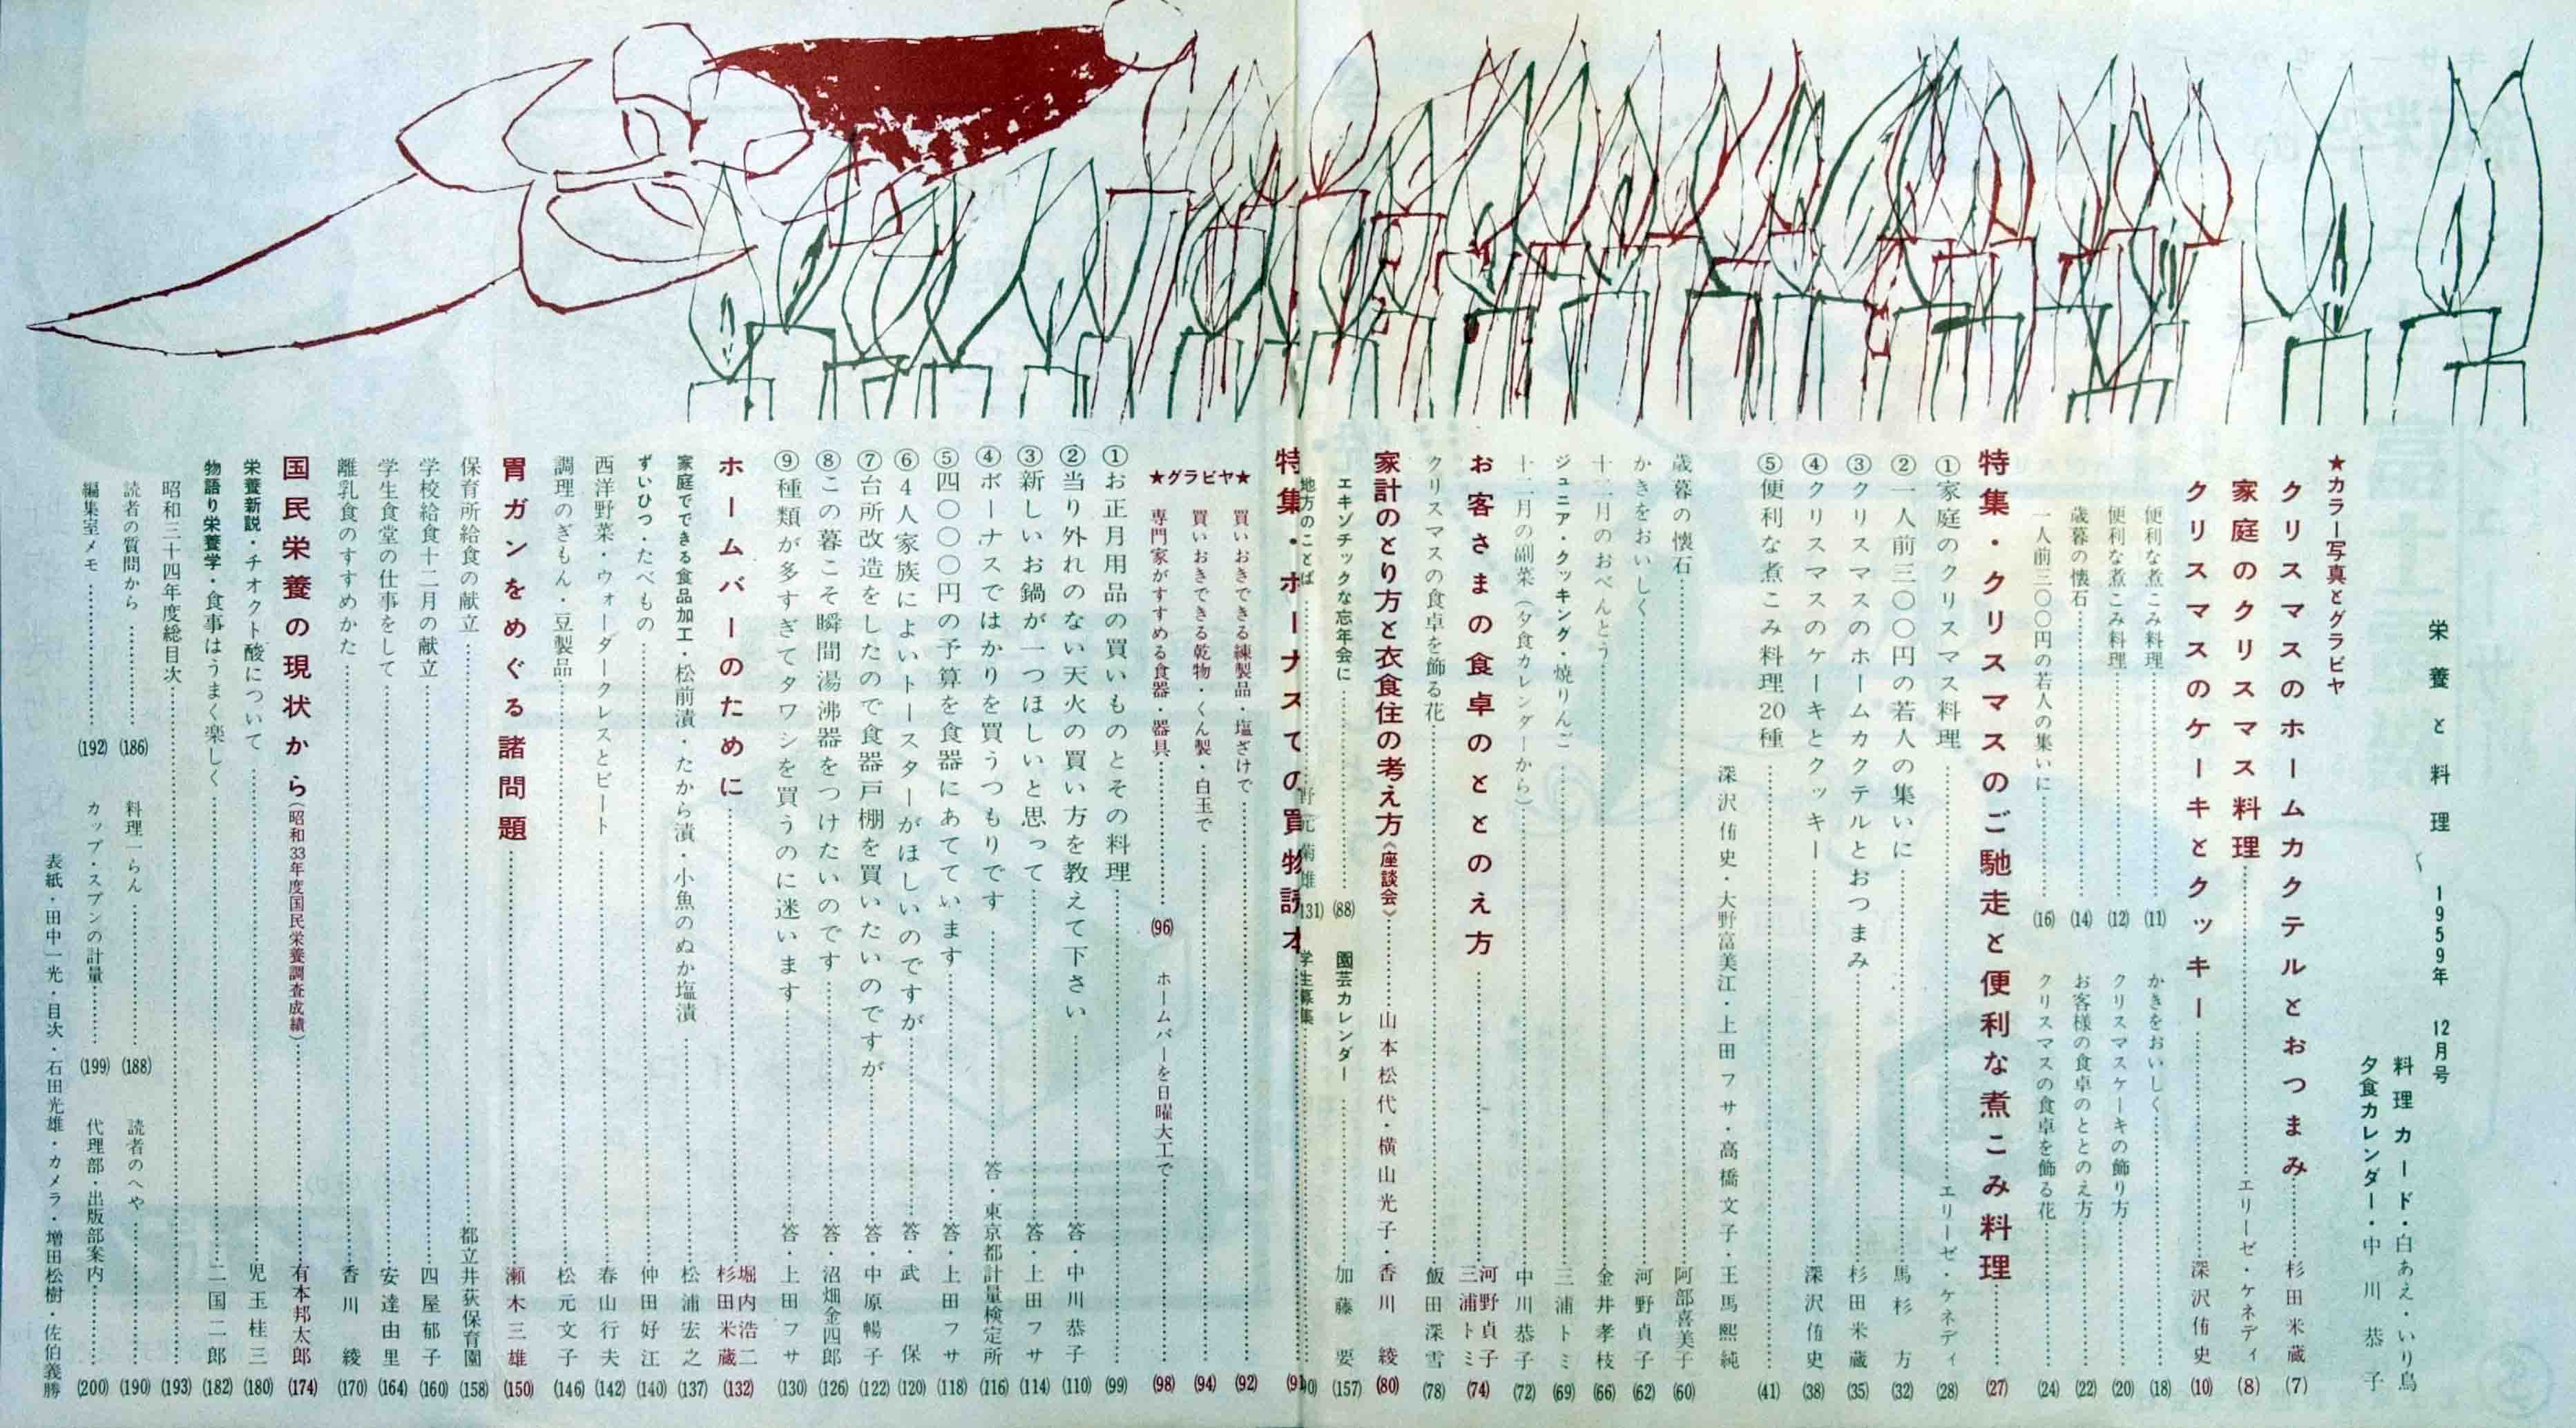 栄養と料理 1959年 12月号
料理カード・白あえ・いり鳥
夕食カレンダー・中川恭子
★カラー写真とグラビヤ
クリスマスのホームカクテルとおつまみ……杉田米蔵 (7)
家庭のクリスマス料理……エリーゼ・ケネディ (8)
クリスマスのケーキとクッキー……深沢侑史 (10)
便利な煮こみ料理……(11)
かきをおいしく……(18)
便利な煮こみ料理……(12)
クリスマスケーキの飾り方……(20)
歳暮の懐石……(14)
お客様の食卓のととのえ方……(22)
一人前三〇〇円の若人の集いに……(16)
クリスマスの食卓を飾る花……(24)
特集・クリスマスのご馳走と便利な煮こみ料理……(27)
①家庭のクリスマス料理……エリーゼ・ケネディ (28)
②一人前三〇〇円の若人の集いに……馬杉方 (32)
③クリスマスのホームカクテルとおつまみ……杉田米蔵 (35)
④クリスマスのケーキとクッキー……深沢侑史 (38)
⑤便利な煮こみ料理20種……(41)
深沢侑史・大野富美江・上田フサ・高橋文子・王馬熙純
歳暮の懐石……阿部喜美子 (60)
かきをおいしく……河野貞子 (62)
十二月のおべんとう……金井孝枝 (66)
ジュニア・クッキング・焼りんご……三浦トミ (69)
十二月の副菜(夕食カレンダーから)……中川恭子 (72)
お客さまの食卓のととのえ方……河野貞子 三浦トミ (74)
クリスマスの食卓を飾る花……飯田深雪 (78)
家計のとり方と衣食住の考え方《座談会》……山本松代・横山光子・香川綾 (80)
エキゾチックな忘年会に……(88)
園芸カレンダー……加藤要 (157)
地方のことば……野元菊雄 131)
学生募集……90)
特集・ボーナスでの買物読本……(91
★グラビヤ★
買いおきできる練製品・塩ざけで……(92)
買いおきできる乾物・くん製・白玉で……(94)
専門家がすすめる食器・器具……(96)
ホームバーを日曜大工で……(98)
①お正月用品の買いものとその料理……(99)
②当り外れのない天火の買い方を教えて下さい……答・中川恭子 (110)
③新しいお鍋が一つほしいと思って……答・上田フサ (114)
④ボーナスではかりを買うつもりです……答・東京都計量検定所 (116)
⑤四〇〇〇円の予算を食器にあてています……答・上田フサ (118)
⑥4人家族によいトースターがほしいのですが……答・武保 (120)
⑦台所改造をしたので食器戸棚を買いたいのですが……答・中原暢子 (122)
⑧この暮こそ瞬間湯沸器をつけたいのです……答・沼畑金四郎 (126)
⑨種類が多すぎてタワシを買うのに迷います……答・上田フサ (130)
ホームバーのために……堀内浩二 杉田米蔵 (132)
家庭でできる食品加工・松前漬・たから漬・小魚のぬか塩漬……松浦宏之 (137)
ずいひつ・たべもの……仲田好江 (140)
西洋野菜・ウォータークレスとビート……春山行夫 (142)
調理のぎもん・豆製品……松元文子 (146)
胃ガンをめぐる諸問題……瀬木三雄 (150)
保育所給食の献立……都立井荻保育園 (158)
学校給食十二月の献立……四屋郁子 (160)
学生食堂の仕事をして……安達由里 (164)
離乳食のすすめかた……香川綾 (170)
国民栄養の現状から(昭和33年度国民栄養調査成績)……有本邦太郎 (174)
栄養新説・チオクト酸について……児玉桂三 (180)
物語り栄養学・食事はうまく楽しく……二国二郎 (182)
昭和三十四年度総目次……(193)
読者の質問から……(186)
料理一らん……(188)
読者のへや……(190)
編集室メモ……(192)
カップ・スプンの計量……(199)
代理部・出版部案内……(200)
表紙・田中一光・目次・石田光雄・カメラ・増田松樹・佐伯義勝